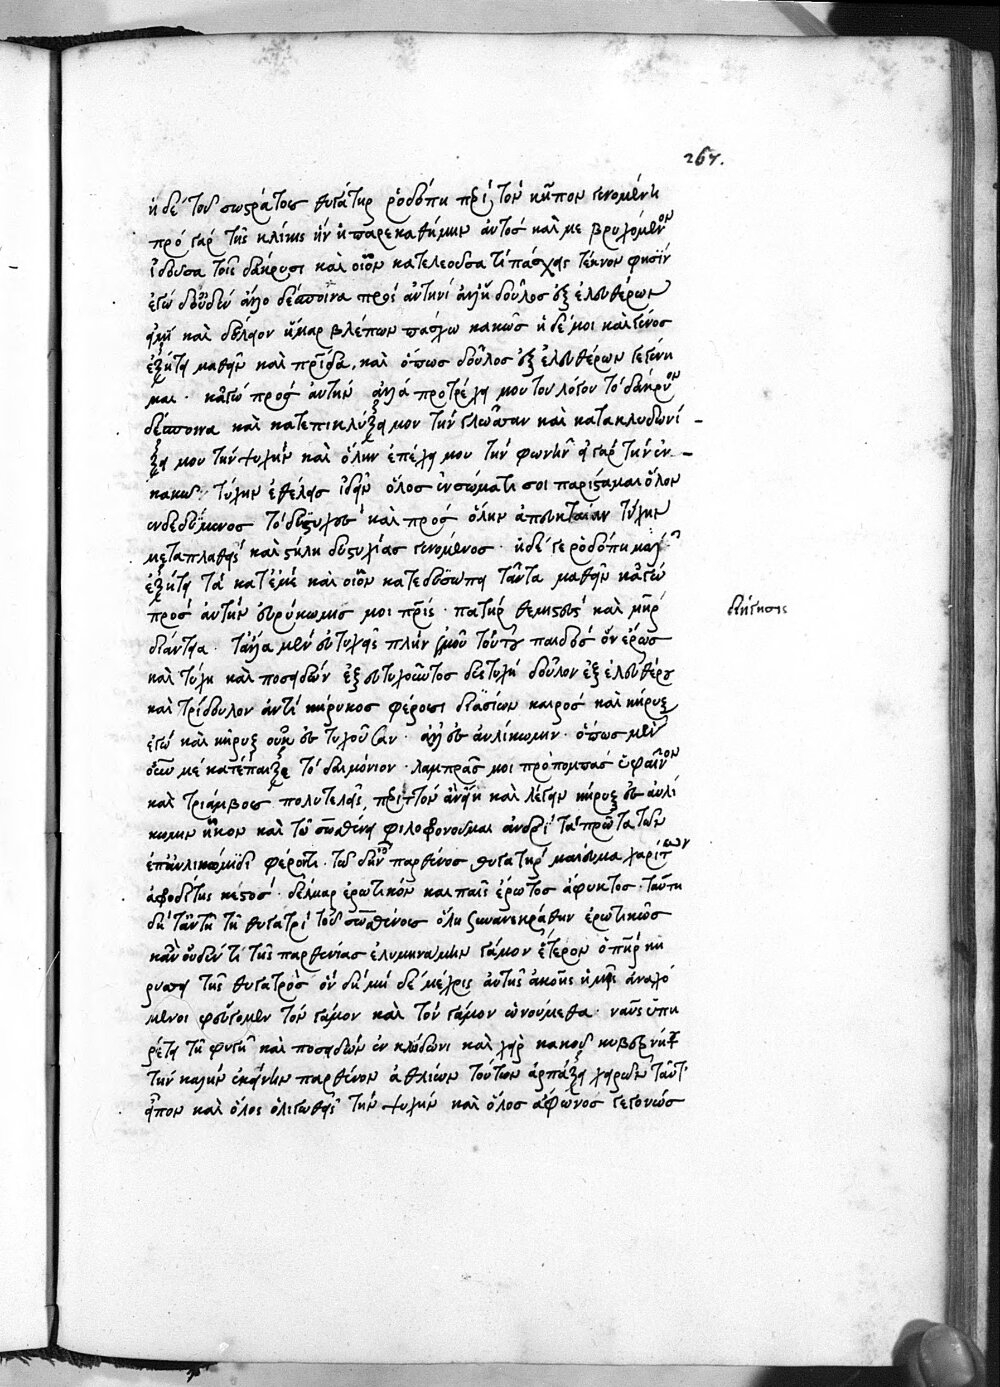 267.
ἡ δὲ τοῦ σωςράτους θυγάτηρ ῥοδόπη περὶ τὸν κῆπον γενομένη
πρὸ γὰρ τῆς κλίνης ἣν ἡ παρεκαθήμην αὐτὸς καὶ με βρυχόμενον
ἰδοῦσα τοῖς δάκρυσι καὶ οἷον κατελεοῦσα τί πάσχεις τέκνον φησίν
ἐγὼ δ' οὐδὲν ἄλλο δέσποινα πρὸς αὐτὴν ἀλλ' ἢ δοῦλος ἐξ ἐλευθέρων
εἰμὶ καὶ δούλιον ἦμαρ βλέπων πάσχω κακῶς ἡ δέ μοι καὶ γένος
ἐζήτει μαθεῖν καὶ πρίδα, καὶ ὅπως δοῦλος ἐξ ἐλευθέρων γεγένη
μαι · κἀγὼ πρὸς αὐτὴν ἀλλὰ προτρέχει μου τοῦ λόγου τὸ δάκρυον
δέσποινα καὶ κατεπικλύζει μου τὴν γλῶτταν καὶ κατακλυδωνί
ζει μου τὴν ψυχὴν καὶ ὅλην ἐπέχει μου τὴν φωνὴν εἰ γὰρ τὴν ἐν
κακοῖς τύχην ἐθέλεις ἰδεῖν ὅλος ἐν σώματί σοι παρίςαμαι ὅλον
ἐνδεδυμένος τὸ δυςυχὲς καὶ πρὸς ὅλην ἀπευκταίαν τύχην
μεταπλαθεὶς καὶ ςήλη δυςυχίας γενόμενος · ἡ δέ γε ῥοδόπη
ἐζήτει τὰ κατ' ἐμὲ καὶ οἷον κατεδυσώπει ταῦτα μαθεῖν κἀγὼ
πρὸς αὐτὴν εὐρύκωμίς μοι πρίς · πατὴρ θεμιςεὺς καὶ μηρ
διάντεια · τἄλλα μὲν εὐτυχεῖς πλὴν ἐμοῦ τούτου παιδός ὃν ἔρως
καὶ τύχη καὶ ποσειδῶν ἐξ εὐτυχοῦντος δυςτυχῆ δοῦλον ἐξ ἐλευθέρου
καὶ τρίδουλον ἀντὶ κήρυκος φέρουσι διασίων καιρὸς καὶ κήρυξ
ἐγὼ καὶ κῆρυξ οὐκ εὐτυχοῦσαν · ἀλλ' εὐ αὐλίκωμιν · ὅπως μὲν
οὖν με κατέπαιξε τὸ δαιμόνιον · λαμπρὰς μοι προπομπὰς ὑφαῖνον
καὶ τριάμβους πολυτελεῖς, περιττὸν ἂν εἴη καὶ λέγειν κῆρυξ εὐ αὐλί
κωμιν ἧκον καὶ τῷ σωσθένει φιλοφρονοῦμαι ἀνδρὶ τὰ πρῶτα τῶν
ἐπ' αὐλικώμιδι φέροντι · τῷ δ' ἦν παρθένος θυγάτηρ μαίευμα χαρίτων
ἀφροδίτης κεςὸς · δέλεαρ ἐρωτικὸν καὶ παῖς ἔρωτος ἄφυκτος · ταύτῃ
δὴ ταύτῃ τῇ θυγατρὶ τοῦ σωσθένους ὅλη ξυνανεκράθην ἐρωτικῶς
κἂν οὐδέν τι τῆς παρθενίας ἐλυμηνάμην γάμον ἕτερον ὁ πηρ κη
ρύσσει τῆς θυγατρὸς ὃν δὴ μὴ δὲ μέχρις αὐτῆς ἀκοῆς ἡμεῖς ἀναλό
μενοι φεύγομεν τὸν γάμον καὶ τὸν γάμον ὠνούμεθα · ναῦς ὑπη
ρέτει τῇ φυγῇ καὶ ποσειδῶν ἐν κλύδωνι καὶ χεὶρ κακοῦ κυβερνήτου
τὴν καλὴν ἐκείνην παρθένον ἀθλίων τούτων ἁρπάζει χειρῶν ταῦτ'
εἶπον καὶ ὅλος ὀλιγωθεὶς τὴν ψυχὴν καὶ ὅλος ἄφωνος γεγονὼς
διήγησις